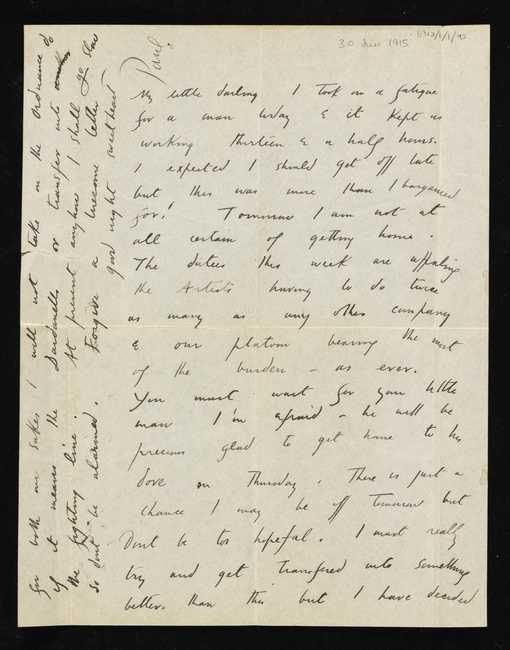 30 June 1915
Paul.
My little darling I took on a fatigue
for a man today & it kept us
working thirteen & a half hours.
I expected I should get off late
but this was more than I bargained
for! Tomorrow I am not at
all certain of getting home.
The duties this week are appalling
the Artists having to do twice
as many as any other company
& our platoon bearing the most
of the burden – as ever.
You must wait for your little
man I'm afraid – he will be
precious glad to get home to his
dove on Thursday. There is just a
chance I may be off tomorrow but
Dont be too hopeful. I must really
try and get transfered into something
better than this but I have decided
for both our sakes I will not take on the Ordnance
if it means the Dardanelles or transfer into
the fighting line. At present anyhow I shall go slow
so dont be alarmed. Forgive a letter
good night sweetheart